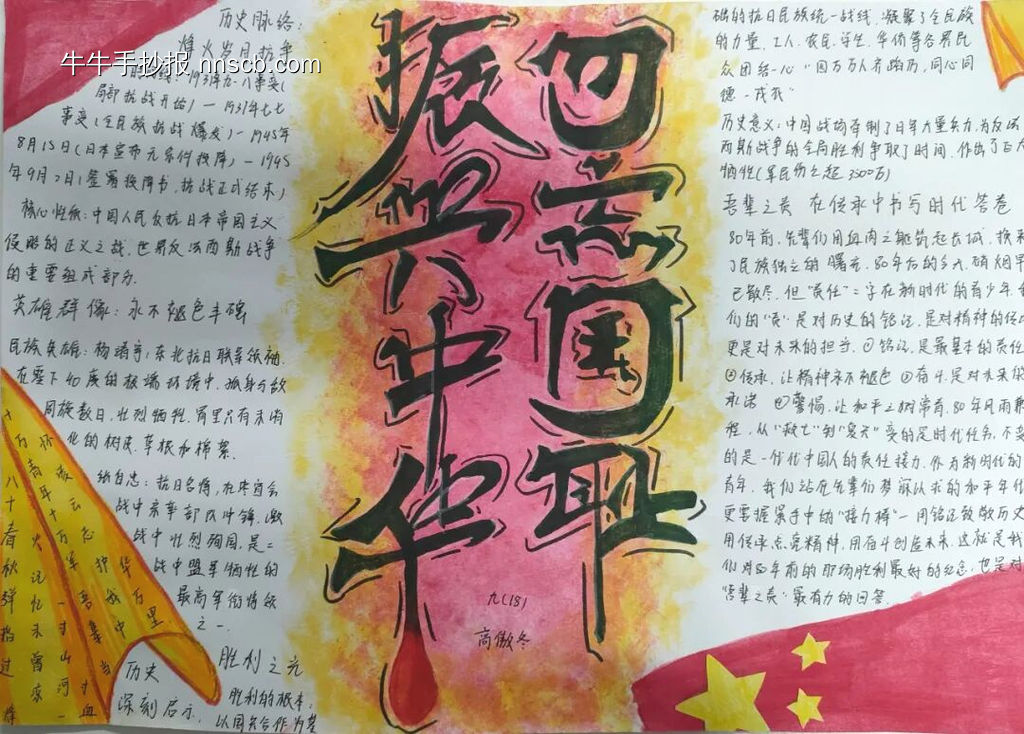 历史脉络:
烽火岁月抗争
牛牛手抄报.nnscb.com
1931年九一八事变(
局部抗战开始)—1937年七七
事变(全民族抗战爆发)—1945年
8月15日(日本宣布无条件投降)—1945
年9月2日(签署投降书,抗战正式结束)
核心性质:中国人民反抗日本帝国主义
侵略的正义之战,世界反法西斯战争
的重要组成部分.
英雄群像:永不褪色丰碑
民族英雄:杨靖宇,东北抗日联军领袖.
在零下40度的极端环境中,孤身与敌
周旋数日,壮烈牺牲.胃里只有未消
化的树皮.草根和棉絮.
张自忠:抗日名将,在枣宜会
战中亲率部队冲锋,激
战中壮烈殉国,是二
战中盟军牺牲的
最高军衔将领
之一.
历史 胜利之光
深刻启示, 胜利的根本:
以国共合作为基
振兴中华
勿忘国耻
九(18)
高傲冬
础的抗日民族统一战线,凝聚了全民族
的力量,工人.农民.学生.华侨等各界民
众团结一心"四万万人齐蹈厉,同心同
德一戎衣"
历史意义:中国战场牵制了日军大量兵力,为反法
西斯战争的全局胜利争取了时间,作出了巨大
牺牲(军民伤亡超3500万)
吾辈之责 在传承中书写时代答卷
80年前,先辈们用血肉之躯筑起长城,换来
了民族独立的曙光.80年后的今天,硝烟早
已散尽.但"责任"二字在新时代的青少年
们的"责"是对历史的铭记,是对精神的传
更是对未来的担当.①铭记,是最基本的责任
②传承,让精神永不褪色③奋斗,是对未来的
承诺 ④警惕,让和平之树常青,80年风雨兼
程,从"救亡"到"复兴"变的是时代任务,不变
的是一代代中国人的责任接力.作为新时代的
青年,我们站在先辈们梦寐以求的和平年代
更要握紧手中的"接力棒"—用铭记致敬历史
用传承点亮精神,用奋斗创造未来.这就是我
们对80年前的那场胜利最好的纪念,也是对
"吾辈之责"最有力的回答.